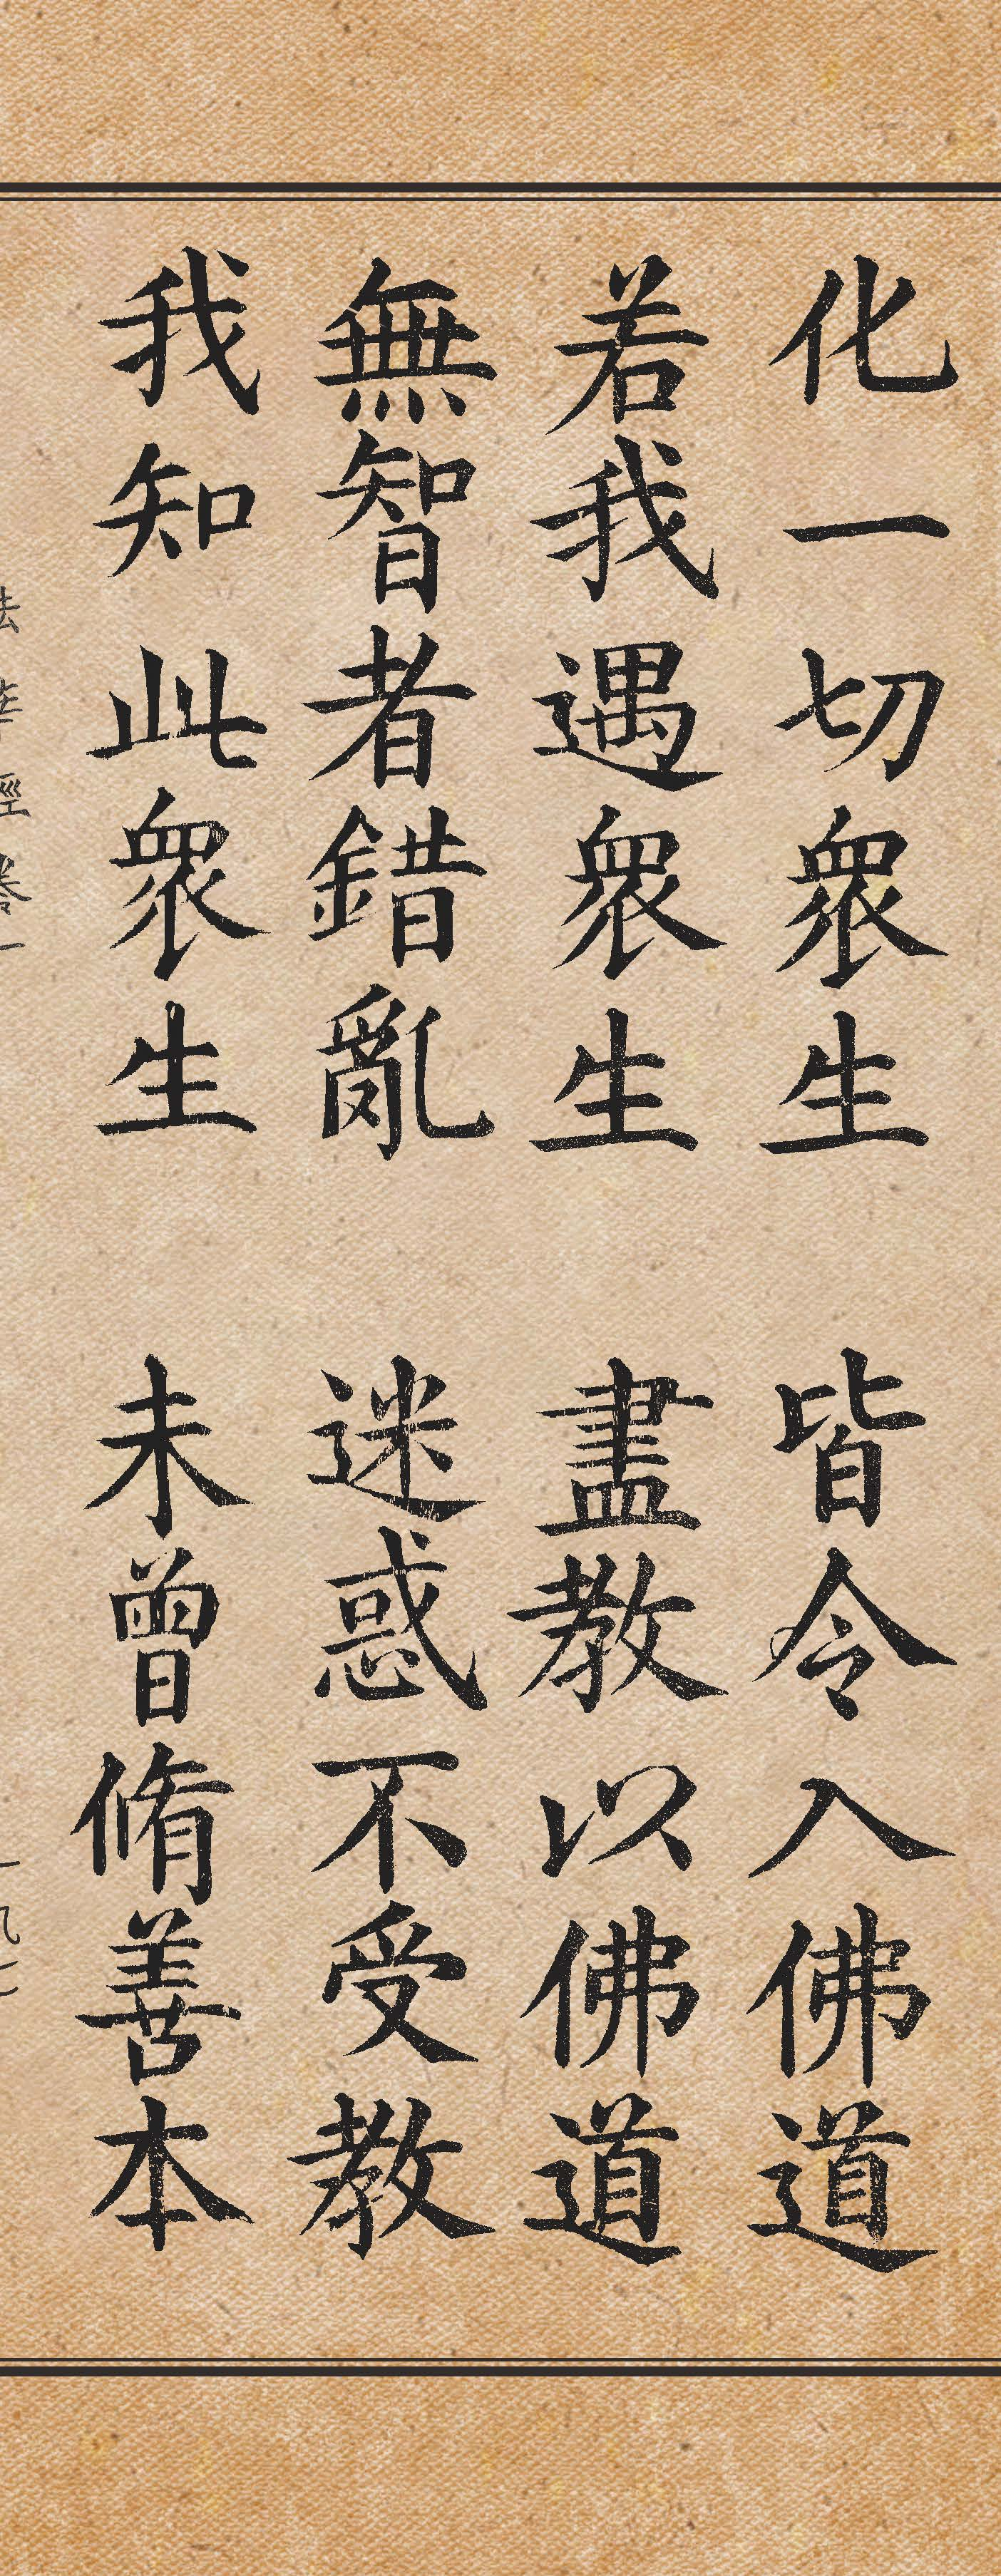 化一切衆生　皆令入佛道
若我遇衆生　盡教以佛道
無智者錯亂　迷惑不受教
我知此衆生　未曾脩善本
法華經卷一